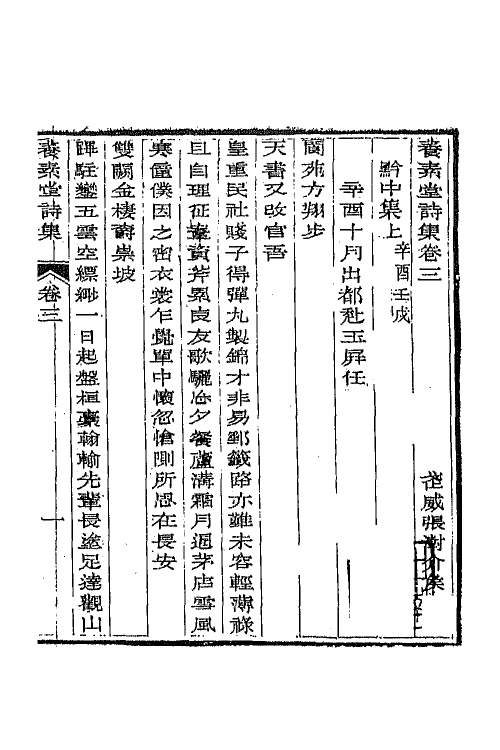 養素堂詩集卷三
武威張澍介侯
黔中集上 辛酉壬戌
辛酉十月出都赴玉屏任
蘭苑方翔步
天書又改官吾
皇重民社賤子得彈丸製錦才非易郵籤路亦難未容輕薄祿
且自理征鞍黃芥累良友歌驪冶夕餐蘆溝霜月迥茅店雪風
寒僮僕因之密衣裘乍覺單中懷忽愴惻所思在長安
雙闕金棲
蹕駐鑾五雲空縹緲一日起盤桓
翰輸先輩長途足達觀山
養素堂詩集
卷三
一